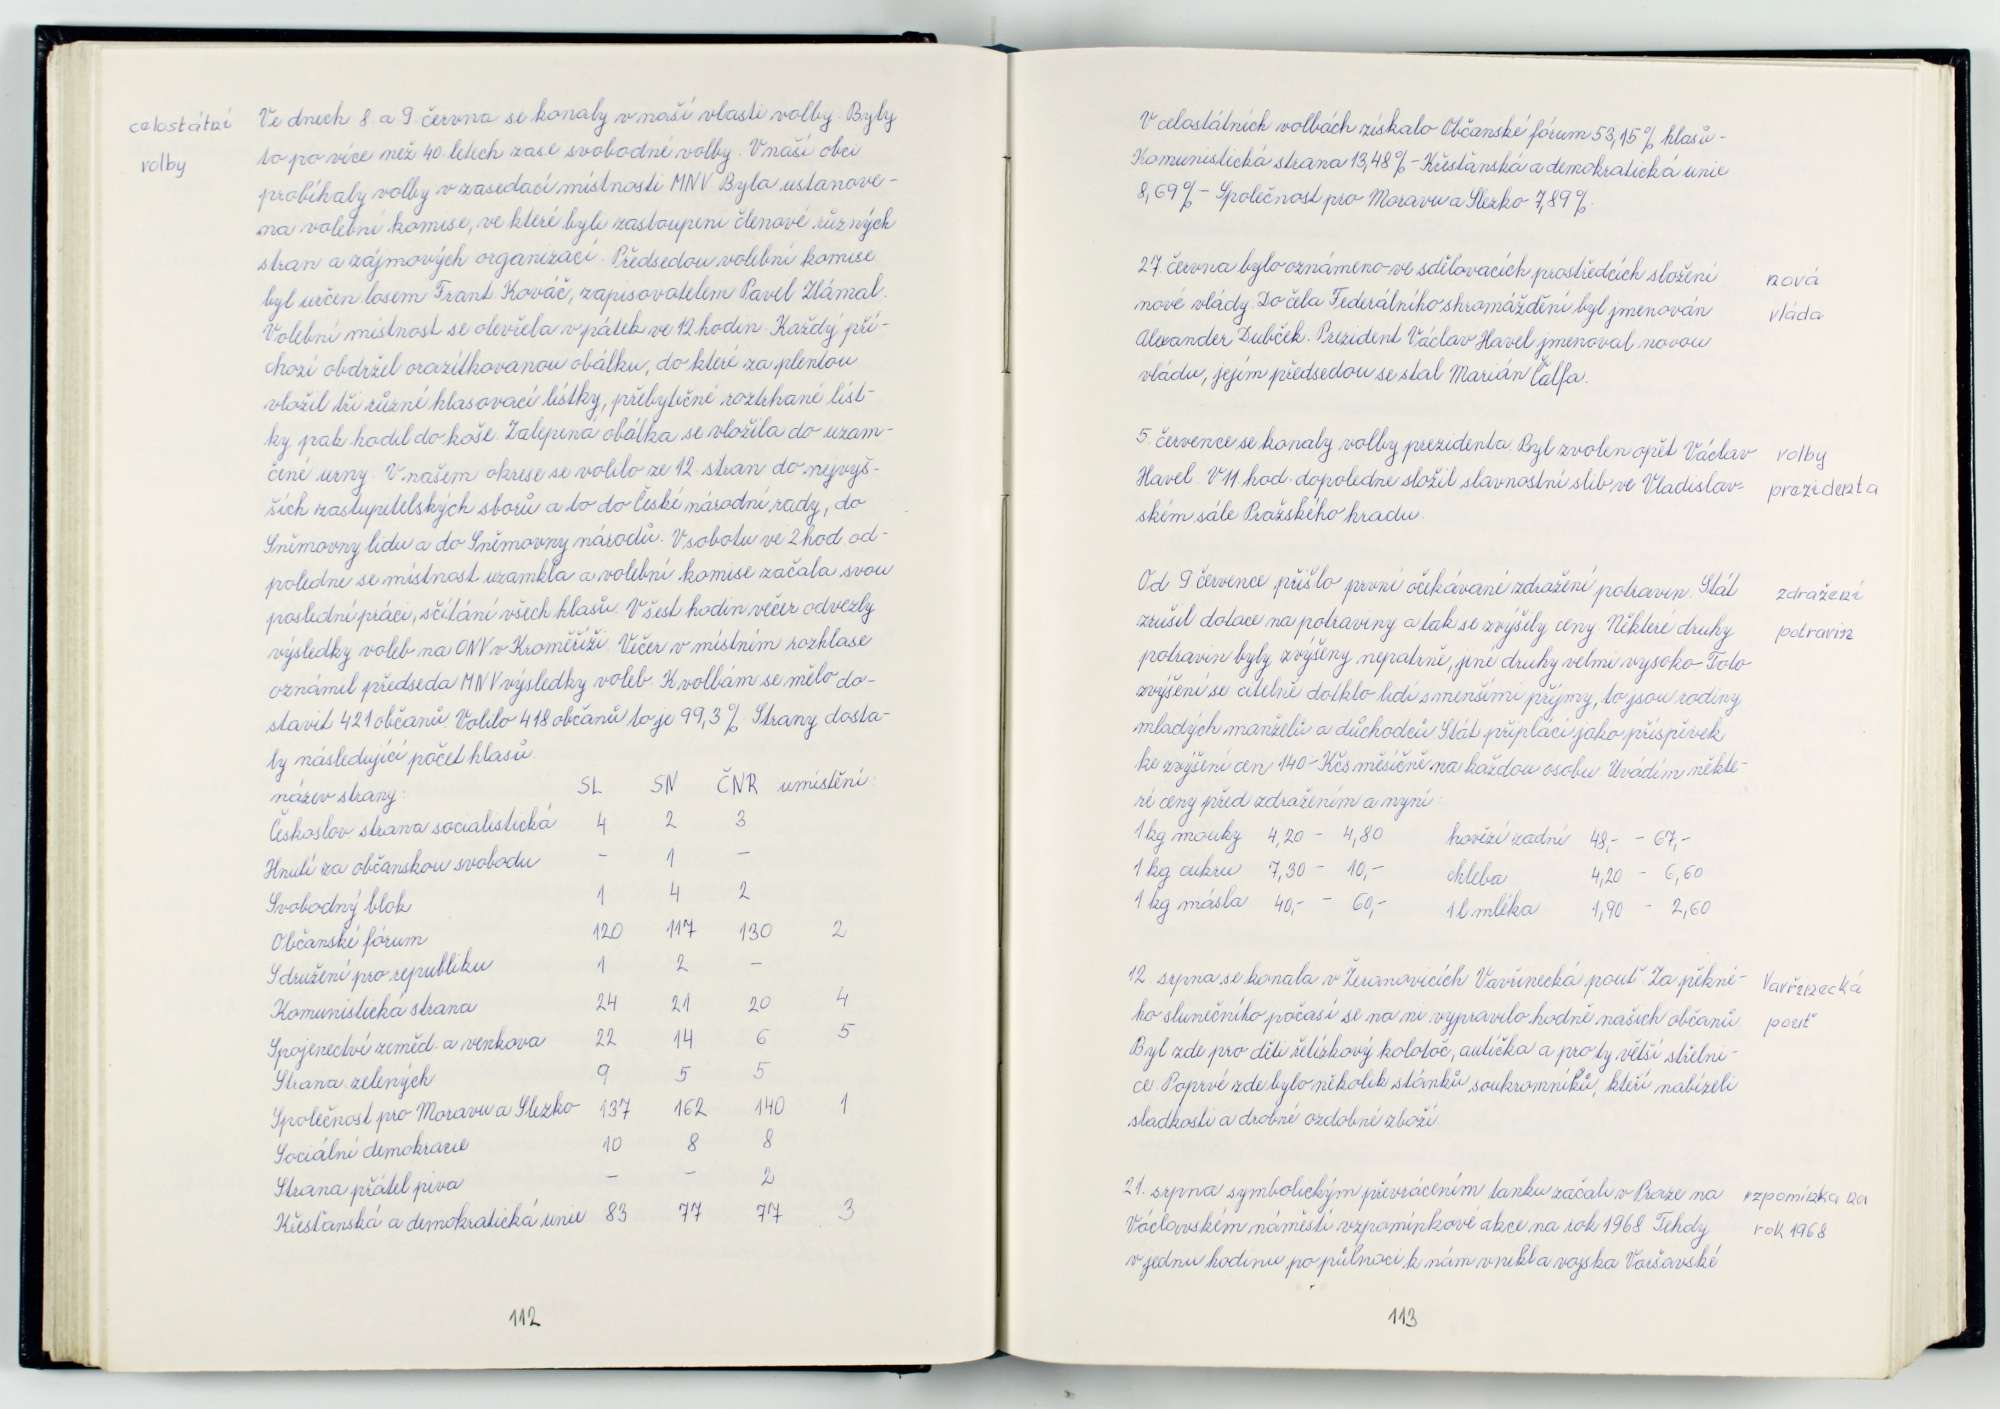 celostátní
volby
Ve dnech 8. a 9. června se konaly v naší vlasti volby. Byly
to po více než 40 letech zase svobodné volby. V naší obci
probíhaly volby v zasedací místnosti MNV. Byla ustanove-
na volební komise, ve které byli zastoupeni členové různých
stran a zájmových organizací. Předsedou volební komise
byl určen losem Frant. Kováč, zapisovatelem Pavel Zlámal.
Volební místnost se otevřela v pátek ve 12 hodin. Každý pří-
chozí obdržel orazítkovanou obálku, do které za plentou
vložil tři různé hlasovací lístky, přebytečné roztrhané líst-
ky pak hodil do koše. Zalepená obálka se vložila do uzam-
čené urny. V našem okrese se volilo ze 12. stran do nejvyš-
ších zastupitelských sborů a to do České národní rady, do
Sněmovny lidu a do Sněmovny národů. V sobotu ve 2 hod. od-
poledne se místnost uzamkla a volební komise začala svou
poslední práci, sčítání všech hlasů. V šest hodin večer odvezly
výsledky voleb na ONV v Kroměříži. Večer v místním rozhlase
oznámil předseda MNV výsledky voleb. K volbám se mělo do-
stavit 421 občanů. Volilo 418 občanů to je 99,3 %. Strany dosta-
ly následující počet hlasů.
název strany: SL SN ČNR umístění:
Českoslov. strana socialistická 4 2 3
Hnutí za občanskou svobodu – 1 –
Svobodný blok 1 4 2
Občanské fórum 120 117 130 2
Sdružení pro republiku 1 2 –
Komunistická strana 24 21 20 4
Spojenectví zeměd. a venkova 22 14 6 5
Strana zelených 9 5 5
Společnost pro Moravu a Slezko 137 162 140 1
Sociální demokracie 10 8 8
Strana přátel piva – – 2
Křesťanská a demokratická unie 83 77 77 3
112
V celostátních volbách získalo Občanské fórum 53,15 % hlasů –
Komunistická strana 13,48 % – Křesťanská a demokratická unie
8,69 % – Společnost pro Moravu a Slezko 7,89 %.
27. června bylo oznámeno ve sdělovacích prostředcích složení
nové vlády. Do čela Federálního shromáždění byl jmenován
Alexander Dubček. Prezident Václav Havel jmenoval novou
vládu, jejím předsedou se stal Marián Čalfa.
nová
vláda
5. července se konaly volby prezidenta. Byl zvolen opět Václav
Havel. V 11 hod. dopoledne složil slavnostní slib ve Vladislav-
ském sále Pražského hradu.
volby
prezidenta
Od 9 července přišlo první očekávané zdražení potravin. Stát
zrušil dotace na potraviny a tak se zvýšily ceny. Některé druhy
potravin byly zvýšeny nepatrně, jiné druhy velmi vysoko. Toto
zvýšení se citelně dotklo lidí s menšími příjmy, to jsou rodiny
mladých manželů a důchodců. Stát připlácí jako příspěvek
ke zvýšení cen 140 – Kčs měsíčně na každou osobu. Uvádím někte-
ré ceny před zdražením a nyní:
zdražení
potravin
1 kg mouky 4,20 – 4,80 hovězí zadní 48,- – 67,-
1 kg cukru 7,30 – 10,- chleba 4,20 – 6,60
1 kg másla 40,- – 60,- 1 l mléka 1,90 – 2,60
12. srpna se konala v Žeranovicích Vavřinecká pouť. Za pěkné-
ho slunečního počasí se na ni vypravilo hodně našich občanů.
Byl zde pro děti řetízkový kolotoč, autíčka a pro ty větší střelni-
ce. Poprvé zde bylo několik stánků soukromníků, kteří nabízeli
sladkosti a drobné ozdobné zboží.
Vavřinecká
pouť
21. srpna symbolickým převrácením tanku začali v Praze na
Václavském náměstí vzpomínkové akce na rok 1968. Tehdy
v jednu hodinu po půlnoci k nám vnikla vojska Varšavské
vzpomínka na
rok 1968
113